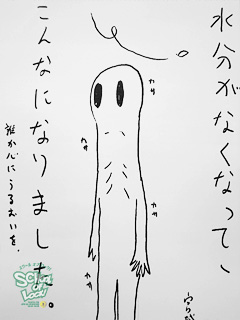 水分がなくなって、
こんなになりました。
誰か心にうるおいを。
カサ
カサ
カサ
カサ
カサ